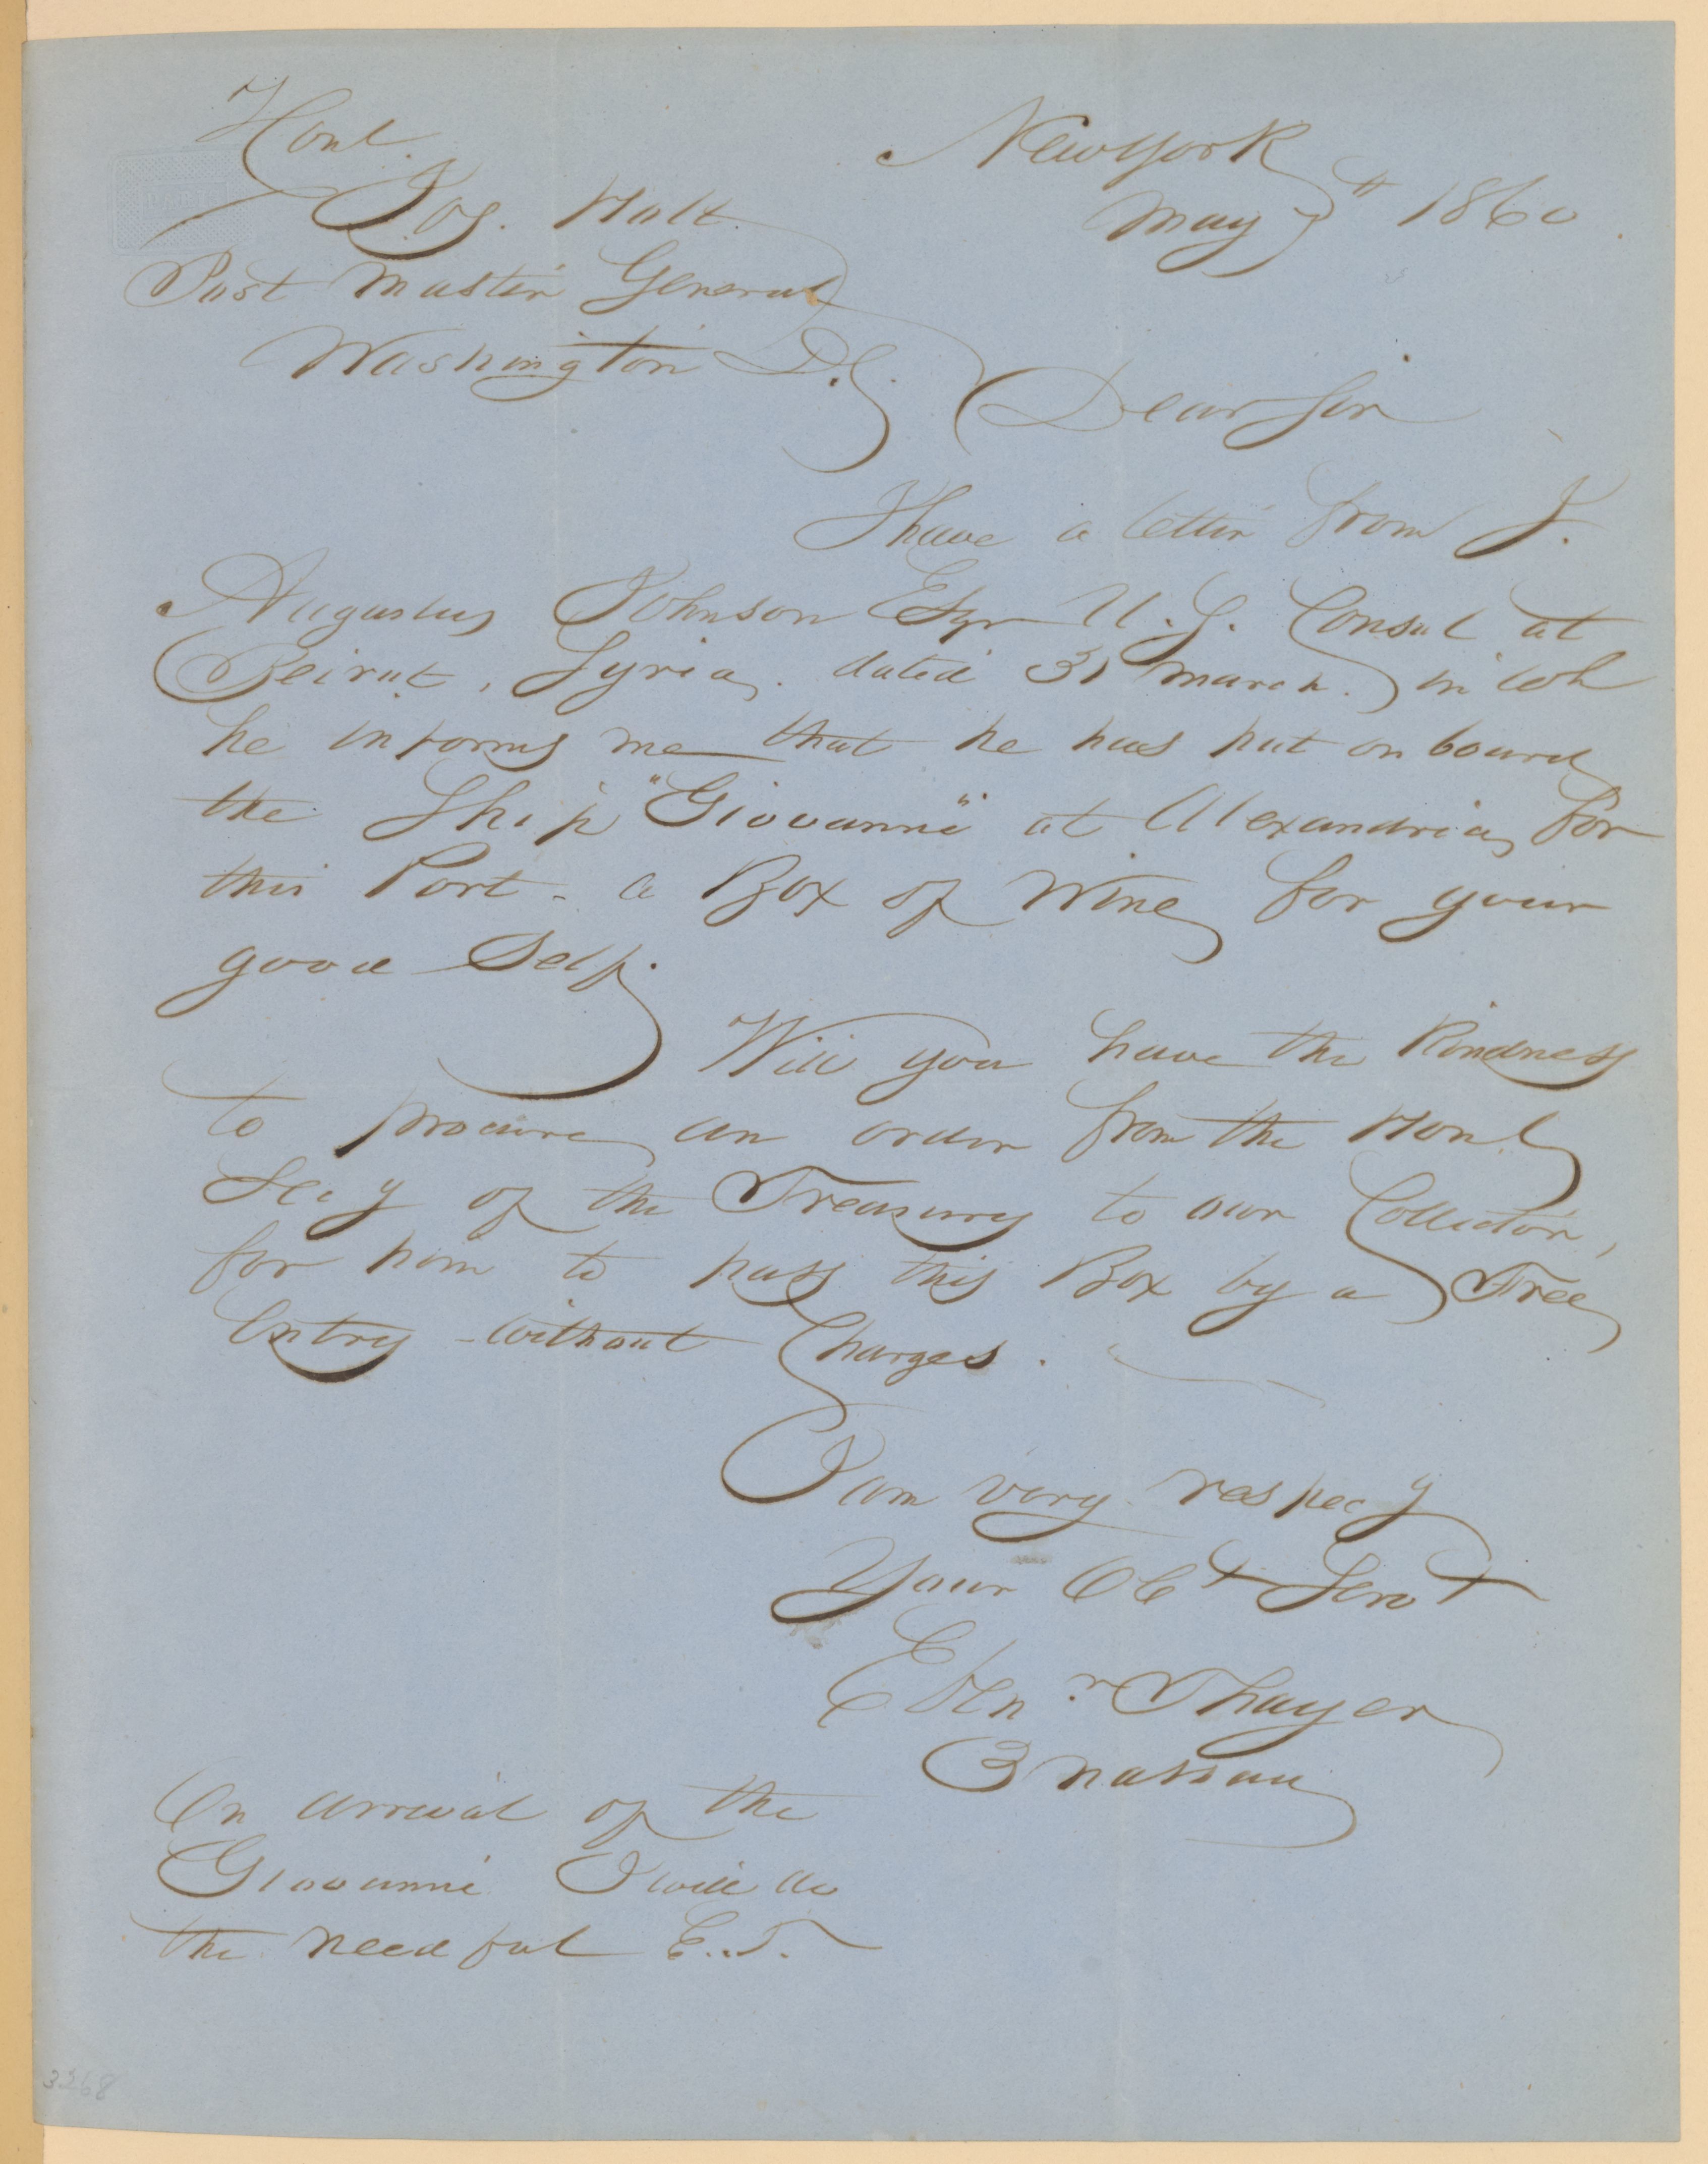 Honl.
Jos. Holt.
Post Master General
Washington D.C.
New York
May 7th 1860
Dear Sir
I have a letter from J.
Augustus Johnson Esqr U.S. Consul at
Beirut, Syria, dated 31 March. in wh
he informs me that he has put on board
the Ship "Giovanni" at Alexandria, for
this Port - a Box of Wine for your
good Self.
Will you have the Kindness
to procure an order from the Honl
Secy of the Treasury to our Collector,
for him to pass this Box by a Free
Entry - without Charges.
I am very respecy
Your Obt Servt
Ebenr Thayer
3 Nassau
On arrival of the
Giovanni I will do
the needful E.T.
3268